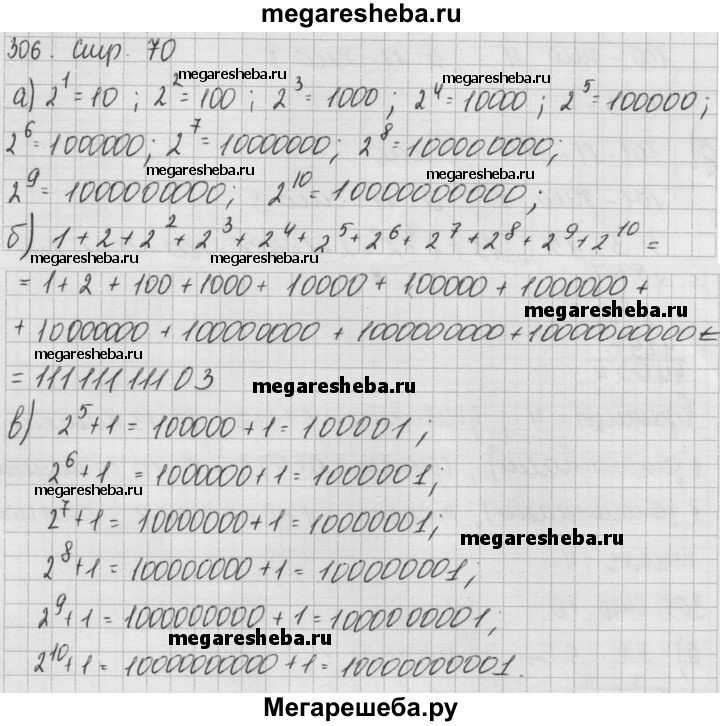 megaresheba.ru
306. стр. 70
megaresheba.ru megaresheba.ru
а) 2¹=10 ; 2²=100 ; 2³=1000 ; 2⁴=10000 ; 2⁵=100000;
2⁶=1000000; 2⁷=10000000; 2⁸=100000000;
megaresheba.ru megaresheba.ru
2⁹= 1000000000; 2¹⁰=10000000000;
б) 1+2+2²+2³+2⁴+2⁵+2⁶+2⁷+2⁸+2⁹+2¹⁰=
megaresheba.ru megaresheba.ru
= 1+2 + 100 +1000+ 10000 + 100000 + 1000000 +
megaresheba.ru
+ 10000000 + 100000000 + 1000000000+10000000000=
megaresheba.ru
= 11111111103
megaresheba.ru
в) 2⁵+1= 100000 +1= 100001;
2⁶+1 = 1000000+1= 1000001;
megaresheba.ru
2⁷+1= 10000000+1= 10000001;
megaresheba.ru
2⁸+1= 100000000 +1= 100000001;
2⁹+1= 1000000000 +1=1000000001;
megaresheba.ru
2¹⁰+1= 10000000000 +1= 10000000001.
Мегарешеба.ру